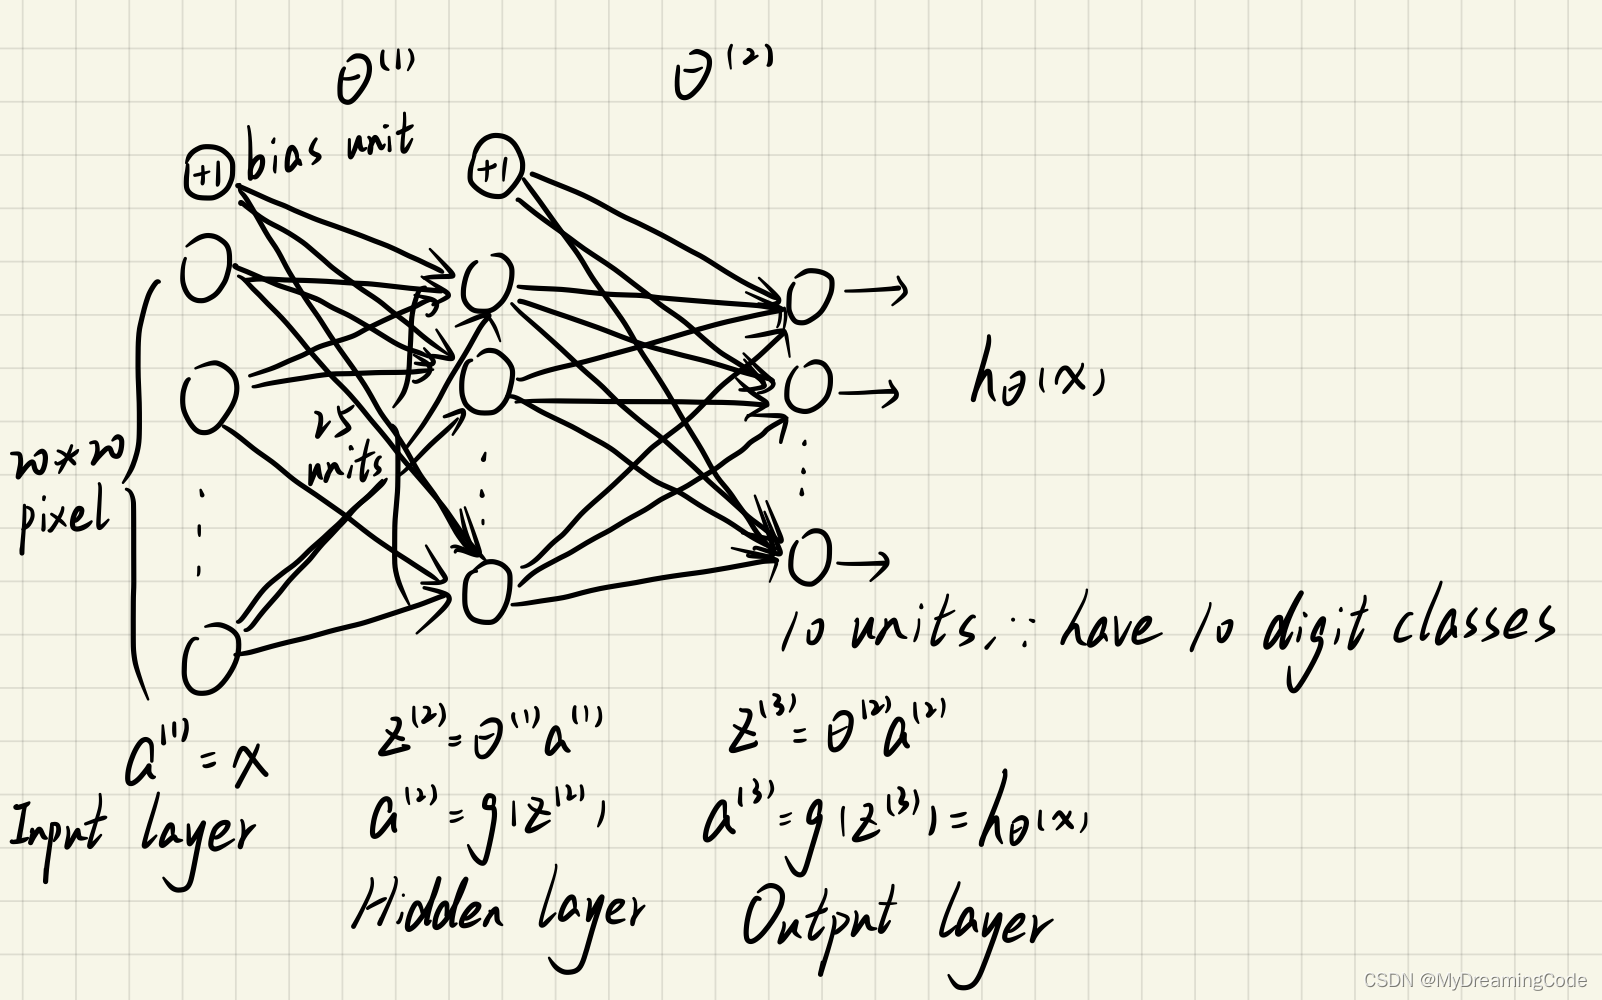 θ⁽¹⁾ θ⁽²⁾
+1 bias unit +1
25
units
20*20
pixel
hθ(x)
10 units, ∵ have 10 digit classes
a⁽¹⁾ = x
z⁽²⁾ = θ⁽¹⁾a⁽¹⁾
z⁽³⁾ = θ⁽²⁾a⁽²⁾
a⁽²⁾ = g(z⁽²⁾)
a⁽³⁾ = g(z⁽³⁾) = hθ(x)
Input layer
Hidden layer
Output layer
CSDN @MyDreamingCode